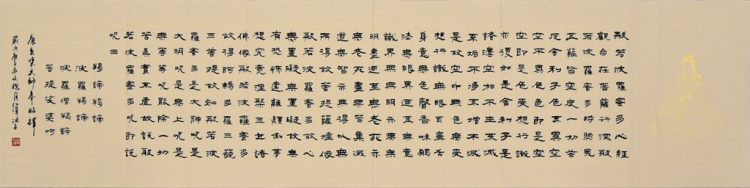 般若波羅蜜多心經
觀自在菩薩行深般
若波羅蜜多時照見
五蘊皆空度一切苦
厄舍利子色不異空
空不異色色即是空
空即是色受想行識
亦復如是舍利子是
諸法空相不生不滅
不垢不淨不增不減
是故空中無色無受
想行識無眼耳鼻舌
身意無色聲香味觸
法無眼界乃至無意
識界無無明亦無無
明盡乃至無老死亦
無老死盡無苦集滅
道無智亦無得以無
所得故菩提薩埵依
般若波羅蜜多故心
無罣礙無罣礙故無
有恐怖遠離顛倒夢
想究竟涅槃三世諸
佛依般若波羅蜜多
故得阿耨多羅三藐
三菩提故知般若波
羅蜜多是大神呪是
大明呪是無上呪是
無等等呪能除一切
苦真實不虛故說般
若波羅蜜多呪即說
呪曰
揭諦揭諦
波羅揭諦
波羅僧揭諦
菩提娑婆訶
唐玄奘大師奉詔譯